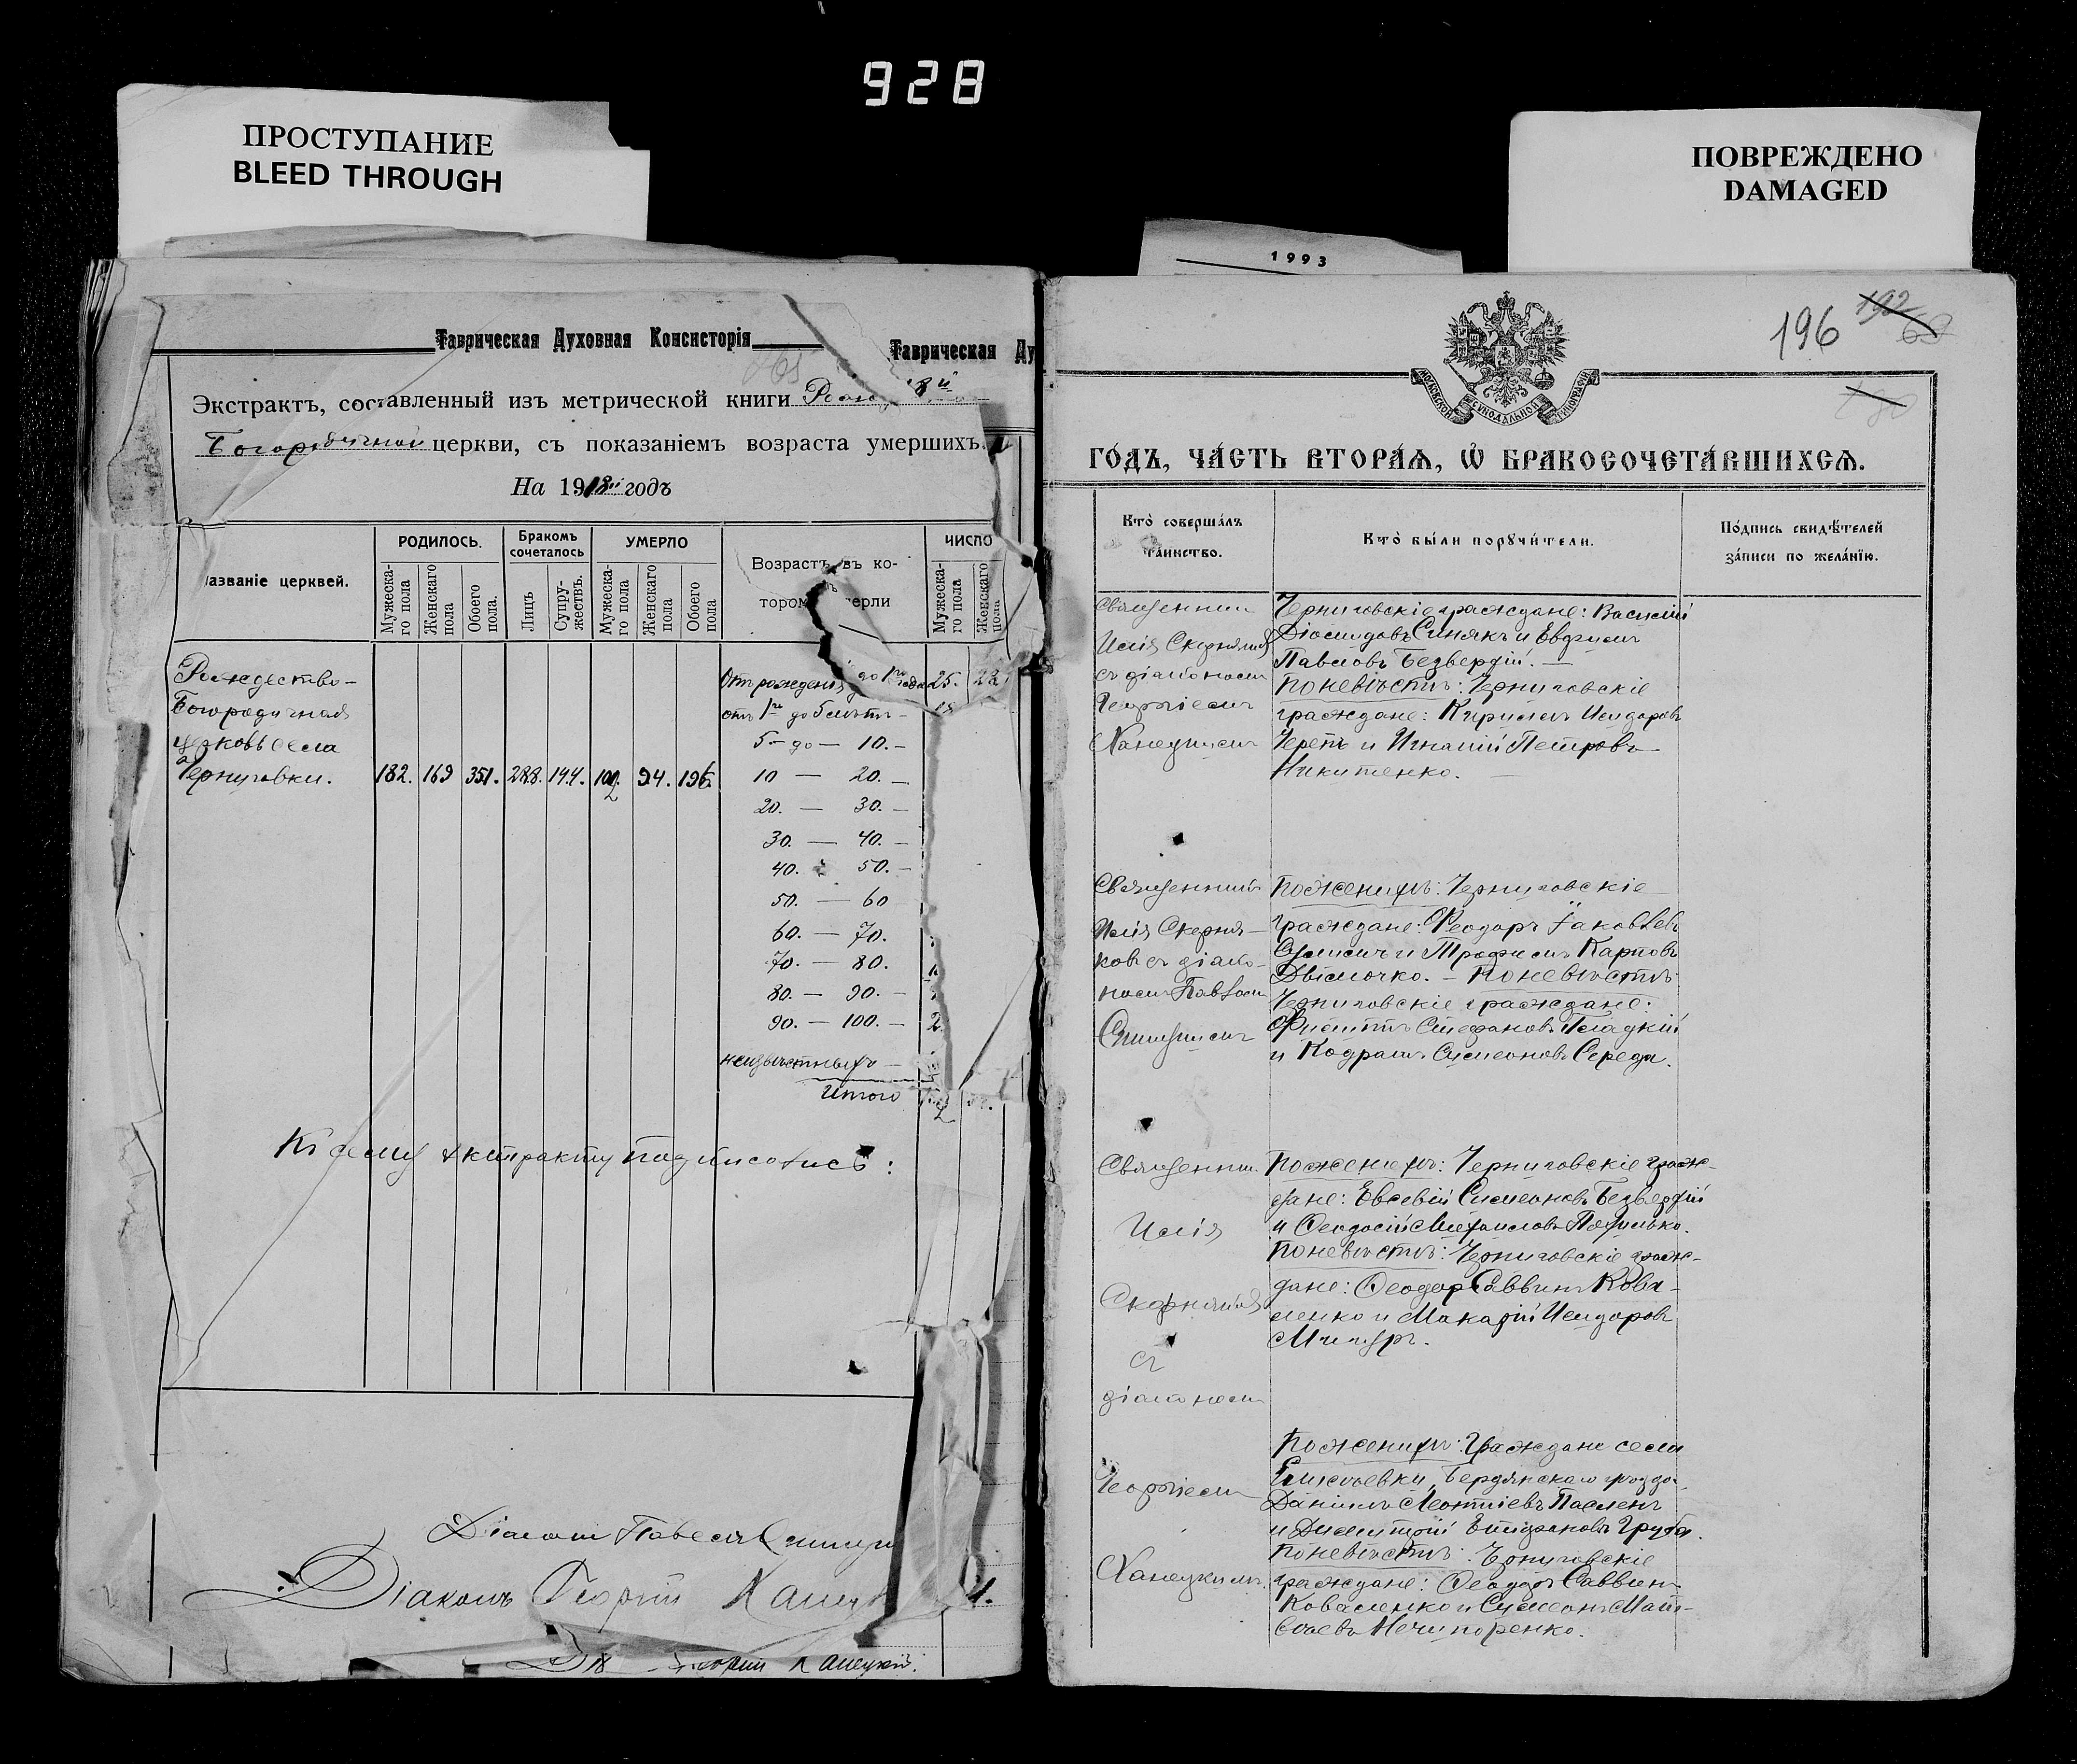 928
ПРОСТУПАНИЕ
BLEED THROUGH
ПОВРЕЖДЕНО
DAMAGED
1993
Таврическая Духовная Консисторія
Таврическая Ду
Экстрактъ, составленный изъ метрической книги
Богородичной церкви, съ показаніемъ возраста умершихъ.
На 1918й годъ
Названіе церквей.
РОДИЛОСЬ.
Мужеска-го пола
Женскаго пола
Обоего пола.
Бракомъ сочеталось
Лицъ
Супру-жествъ.
УМЕРЛО
Мужеска-го пола
Женскаго пола
Обоего пола
Возрастъ, въ ко-
тором ерли
ЧИСЛО
Мужеска-го пола
Женскаго пола
Рождество-
Богородичная
церковь села
Черниговки. 182. 169 351. 288. 144. 102 94. 196.
Отъ рожденія до 1го года 25. 22
отъ 1го до 5 лѣтъ -
5 - до - 10. -
10 - 20. -
20. - 30. -
30. - 40. -
40. - 50. -
50. - 60
60. - 70.
70. - 80.
80. - 90. -
90. - 100. - 2
неизвѣстныхъ -
Итого
Къ сему экстракту подписались:
Діаконъ Павелъ
Діаконъ Георгій Ханец
Георгій Ханецкій.
196
192
МОСКОВСКОЙ СѴНОДАЛЬНОЙ ТИПОГРАФІИ
ГО́ДЪ, ЧА́СТЬ ВТОРА́Ѧ, Ѡ҆ БРАКОСОЧЕТА́ВШИХСѦ.
Кто̀ соверша́лъ
та́инство.
Кто̀ бы́ли порꙋчи́тели.
По́дпись свидѣ́телей
за́писи по жела́нїю.
Священник
Илія Скорняков
съ діакономъ
Георгіемъ
Ханецкимъ
Черниговскіе граждане: Василій
Діомидовъ Синякъ и Евфимъ
Павловъ Безверхій. -
По невѣстѣ: Черниговскіе
граждане: Кириллъ Исидоровъ
Черепъ и Игнатій Петровъ
Никитенко. -
Священникъ
Илія Скорня-
ковъ съ діако-
номъ Павломъ
По женихѣ: Черниговскіе
граждане: Ѳеодоръ Іаковлевъ
и Трофимъ Карповъ
Двѣлочко. - По невѣстѣ:
Черниговскіе граждане:
Филиппъ Стефановъ Гладкій
и Кодратъ Симеоновъ Середа.
Священник
Илія
Скорняковъ
съ
діакономъ
Георгіемъ
Ханецкимъ.
По женихѣ: Черниговскіе граж-
дане: Евсевій Симеоновъ Безверхій
и Ѳеодосій Михаиловъ
По невѣстѣ: Черниговскіе граж-
дане: Ѳеодоръ Саввинъ Кова-
ленко и Макарій Исидоровъ
По женихѣ: Граждане села
Елисеевки, Бердянскаго уѣзда
Даніилъ Леонтіевъ
и Димитрій Епифановъ Груба.
По невѣстѣ: Черниговскіе
граждане: Ѳеодоръ Саввинъ
Коваленко и Симеонъ Мат-
ѳіевъ Нечипоренко.